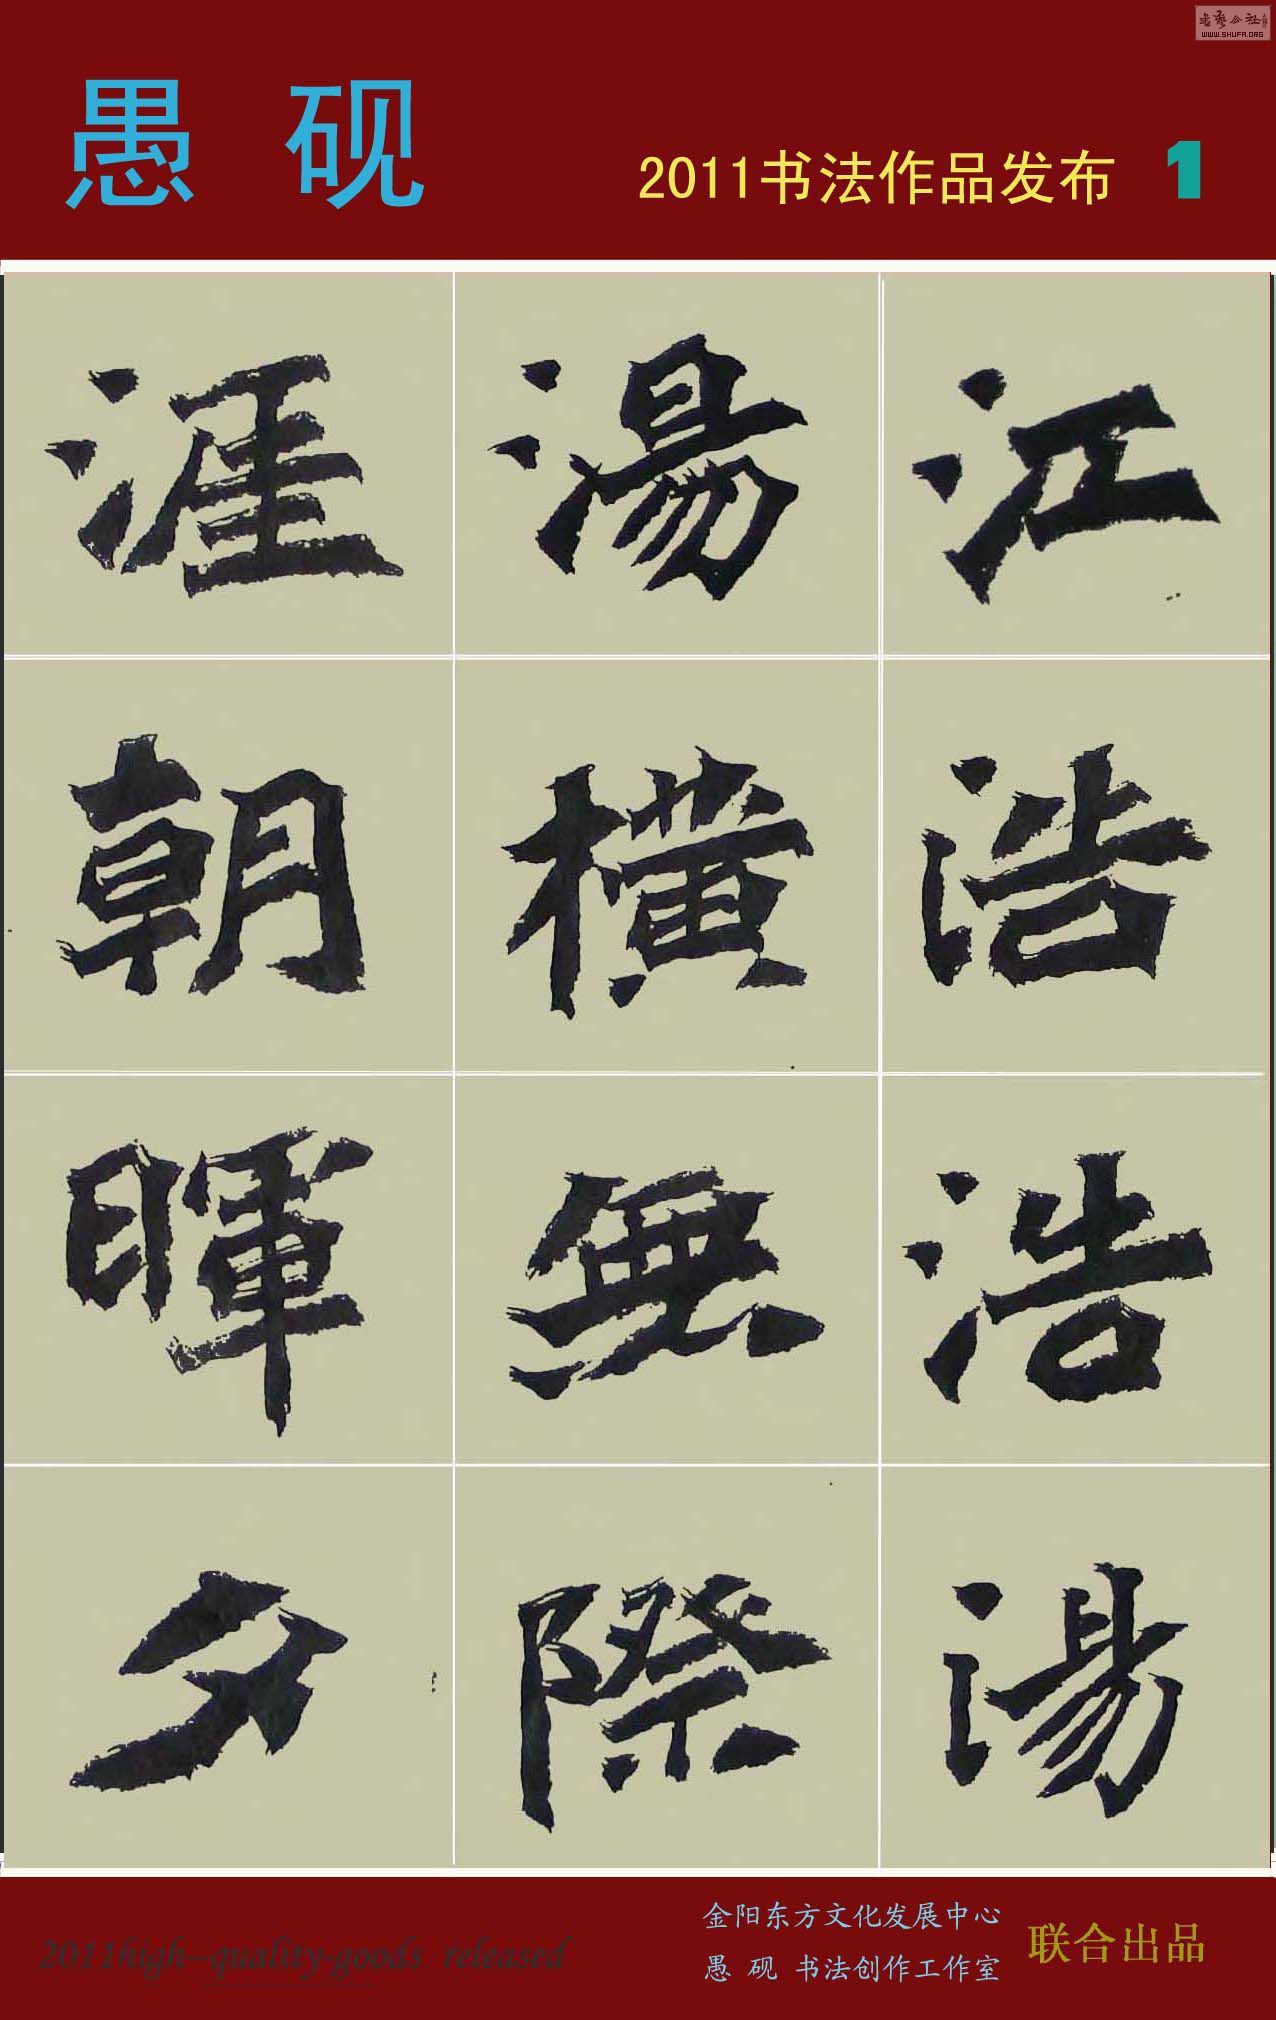 書藝公社
WWW.SHUFA.ORG
愚 砚
2011书法作品发布 1
江浩浩湯
湯橫無際
涯朝暉夕
2011high-quality-goods released
金阳东方文化发展中心
愚 砚 书法创作工作室
联合出品